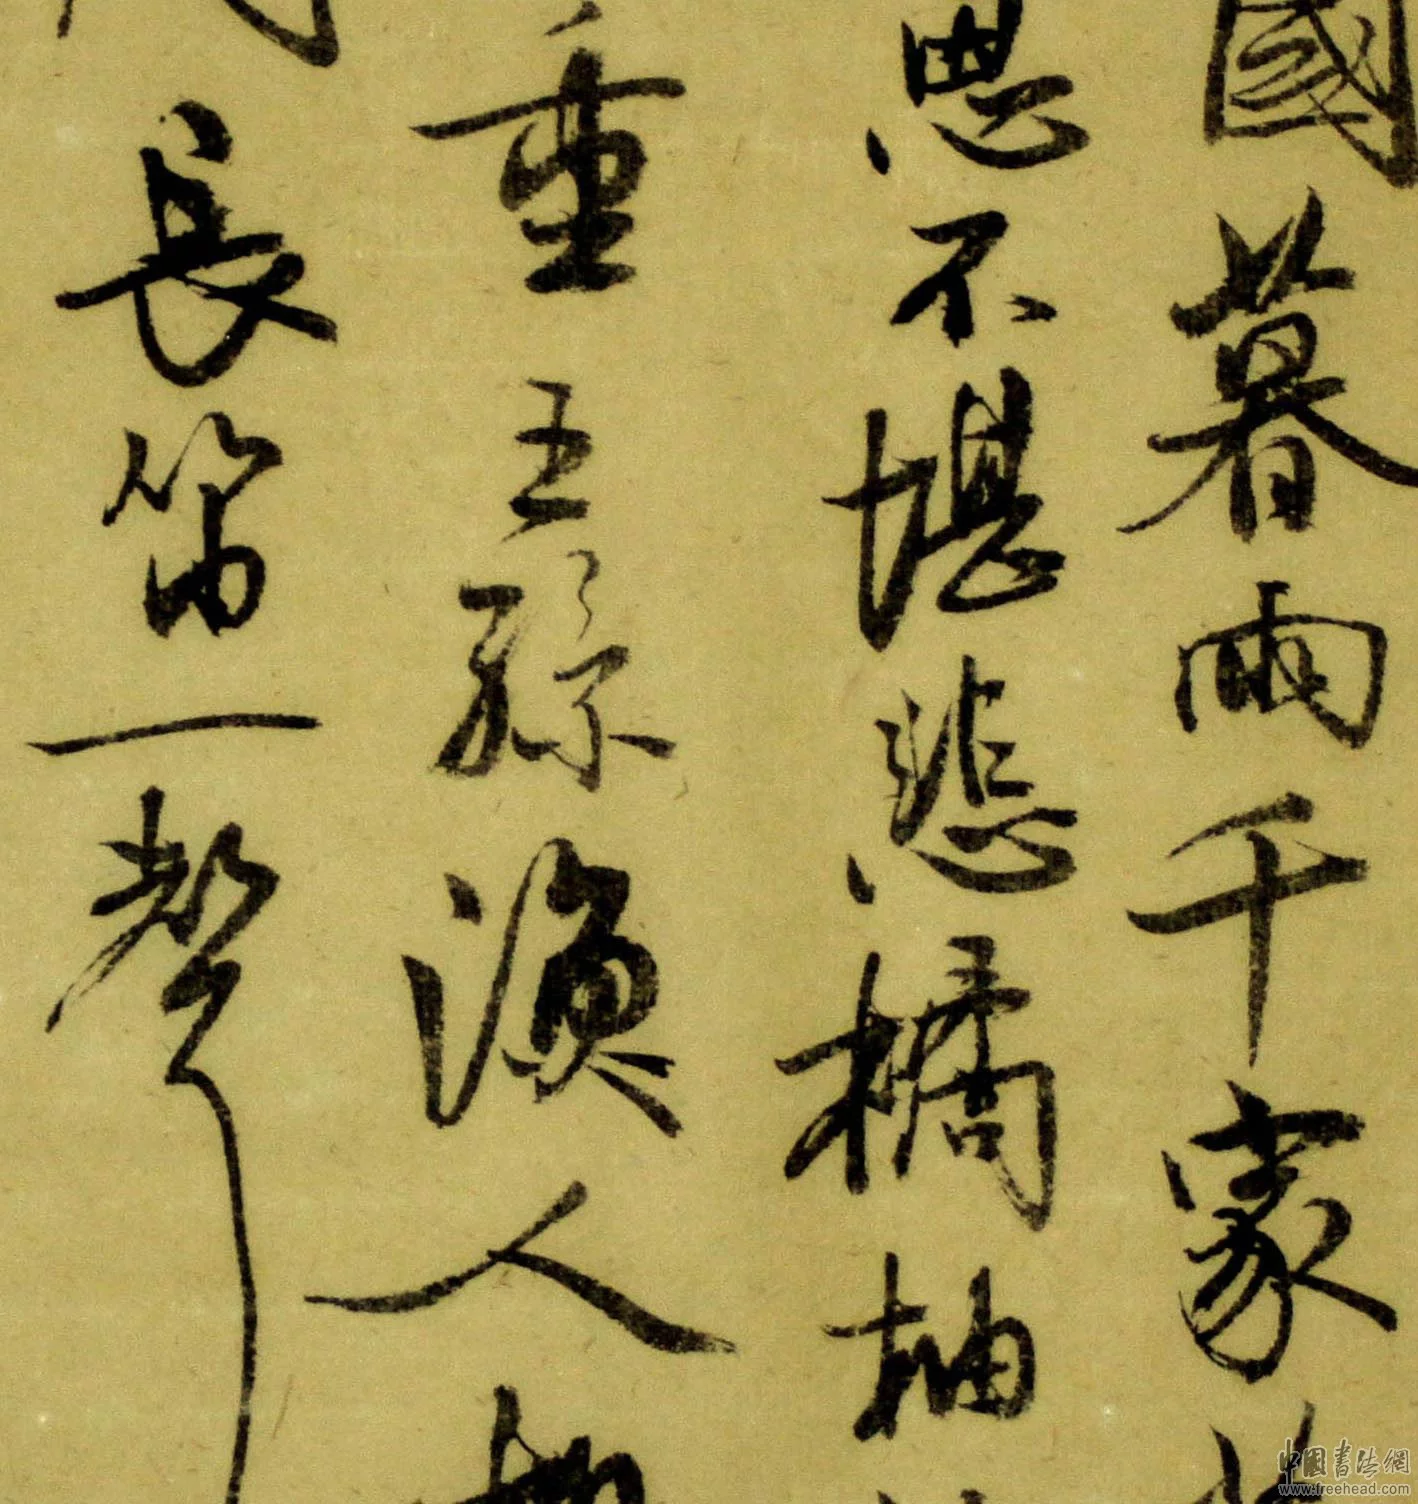 國暮雨千家
思不堪悲橘柚
重王孫漁人
長笛一聲
中國書法網
www.freehead.com